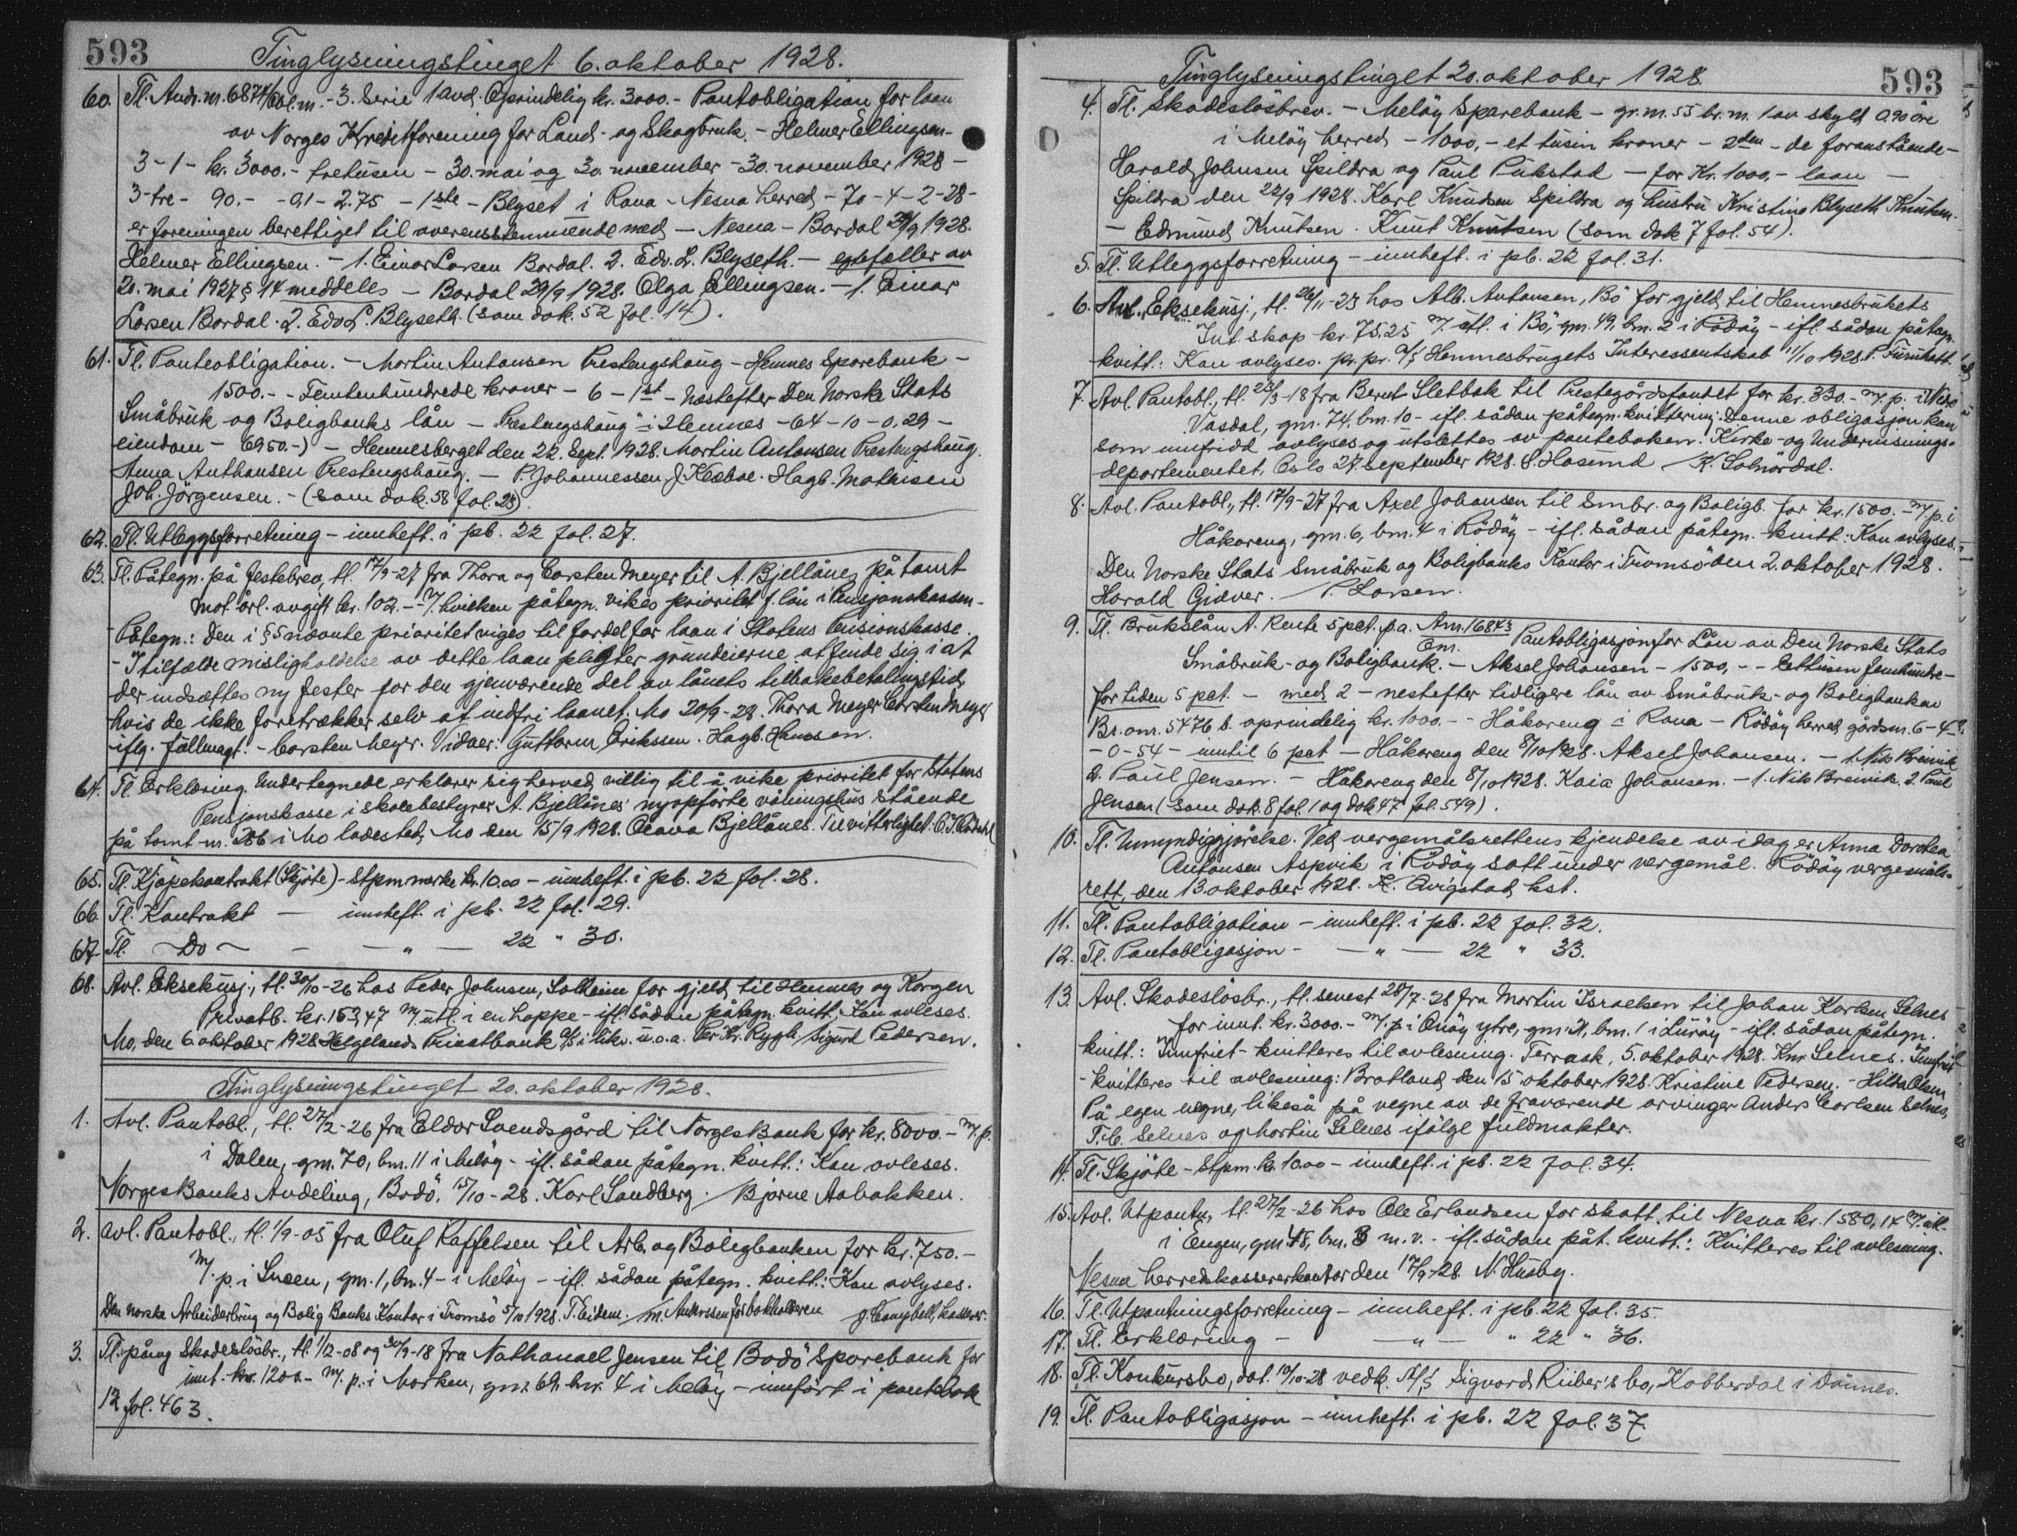 593
Tinglysningstinget 6. oktober 1928.
60. Tl. Andr. nr. 6874 - 3. Serie 1 avd. Oprindelig kr. 3000.- Pantobligation for laan
av Norges Kreditforening for Land- og Skogbruk. - Helmer Ellingsen -
3 - 1 - kr. 3000.- tretusen - 30. mai og 30. november - 30. november 1928 -
3-tre - 90.- - 91 - 2.75 - 1ste - Blyset i Rana - Nesna herred - 70-4-2-28-
er foreningen berettiget til overensstemmende med - Nesna - Bardal 29/9 1928.
Helmer Ellingsen. - 1. Einar Larsen Bardal. 2. Edv. L. Blyseth. - egtefæller av
20. mai 1927 § 14 meddeles - Bardal 29/9 1928. Olga Ellingsen. - 1. Einar
Larsen Bardal. 2. Edv L. Blyseth. (som dok. 52 fol. 14).
61. Tl. Panteobligation. - Martin Antonsen Prestengshaug - Hemnes Sparebank -
1500.- - Femtenhundrede kroner - 6 - 1st - Næstefter Den Norske Stats
Småbruk og Boligbanks lån - "Prestengshaug" i Hemnes - 64-10-0,29-
eiendom - 6950.-) - Hemnesberget den 22. Sept. 1928. Martin Antonsen Prestengshaug.
Anna Anthonsen Prestengshaug. - P. Johannessen, J. Kleboe. Hagb. Mathisen
Joh. Jörgensen. - (som dok. 58 fol. 23).
62. Tl. Utleggsforretning - innheft. i pb. 22 fol. 27.
63. Tl. Påtegn. på festebrev, tl. 17/9-27 fra Thora og Carsten Meyer til A. Bjellånes på tomt
mot årl. avgift kr. 102.- - m/. hvilken påtegn. vikes prioritet f. lån i Pensjonskassen. -
Påtegn.: Den i § 5 nævnte prioritet viges til fordel for laan i Statens Pensionskasse.
- I tilfælde misligholdelse av dette laan pligter grundeierne at finde sig i at
der indsættes ny fester for den gjenværende del av lånets tilbakebetalingstid,
hvis de ikke foretrækker selv at indfri laanet. Mo 20/9-28. Thora Meyer Carsten Meyer
iflg. fullmagt. - Carsten Meyer. Vidner: Guttorm Erikssen. Hagb. Hanssen.
64. Tl. Erklæring. Undertegnede erklærer sig herved villig til å vike prioritet for Statens
Pensjonskasse i skolebestyrer A. Bjellånes' nyopförte våningshus stående
på tomt nr. 286 i Mo ladested, Mo den 15/9 1928. Olava Bjellånes. Til vitterlighet:
65. Tl. Kjöpekontrakt (Skjöte) - Stpm merke kr. 10.00 - innheft. i pb. 22 fol. 28.
66. Tl. Kontrakt - innheft. i pb. 22 fol. 29.
67. Tl. - Do - - - " - 22 " 30.
68. Avl. Eksekusj., tl. 30/10-26 hos Peder Johnsen, Solheim for gjeld til Hemnes og Korgen
Privatb. kr. 153,47 m/ utl. i en hoppe - ifl. sådan påtegn. kvitt.: Kan avleses.
Mo, den 6. oktober 1928. Helgelands Privatbank A/S i likv. u.o.a. Per Kr. Rygh, Sigurd Pedersen.
Tinglysningstinget 20. oktober 1928.
1. Avl. Pantobl., tl. 27/2-26 fra Eldor Svendsgård til Norges Bank for kr. 8000.- m/ p.
i Dalen, gnr. 70, bnr. 11 i Melöy - ifl. sådan påtegn. kvitt.: Kan avleses.
Norges Banks Avdeling, Bodö, 15/10-28. Karl Sandberg. / Bjarne Aabakken.
2. Avl. Pantobl., tl. 1/9-05 fra Oluf Kaffelsen til Arb. og Boligbanken for kr. 750.-
m/. p. i Sneen, gnr. 1, bnr. 4 - i Melöy - ifl. sådan påtegn. kvitt: Kan avlyses.
Den norske Arbeiderbruk og Bolig Banks Kontor i Tromsö 5/10 1928. T. Eidem. / M. Anderssen for bokholderen J. Campbell, kasserer.
3. Tl. påny Skadeslösbr., tl. 1/12-08 og 30/9-18 fra Nathanael Jensen til Bodö Sparebank for
innt. kr. 1200.- m/. p. i Marken, gnr. 69, bnr. 4 i Melöy - innfört i pantebok
12 fol. 463.
Tinglysningstinget 20. oktober 1928. 593
4. Tl. Skadeslösbrev. - Melöy Sparebank - gr. nr. 55 br. nr. 1 av skyld 0.90 öre
i Melöy herred - 1000,- et tusin kroner - 2den - de foranstående -
Harald Johnsen Spildra og Paul Pukstad - for Kr. 1000.- laan -
Spildra den 22/9 1928. Karl Knudsen Spildra og hustru Kristine Blyseth Knutsen.
- Edmund Knutsen. Knut Knutsen (som dok 7 fol. 54).
5. Tl. Utleggsforretning - innheft. i pb. 22 fol. 31.
6. Avl. Eksekusj., tl. 26/11-23 hos Alb. Antonsen, Bö for gjeld til Hemnesbrukets
Int. skap kr. 75.25 m/. utl. i Bö, gnr. 49, bnr. 2 i Rödöy - ifl. sådan påtegn.
kvitt.: Kan avlyses. pr. pr. A/S Hemnesbrugets Interessentskab 11/10 1928. P. Furuhatt.
7. Avl. Pantobl., tl. 23/3-18 fra Berut Sletbak til Prestegårdsfondet for kr. 330.- m/. p. i Nedre
Vasdal, gnr. 74, bnr. 10 - ifl. sådan påtegn. kvittering: Denne obligasjon kan
som innfridd avlyses og utslettes av panteboken. Kirke- og Undervisnings-
departementet, Oslo 27. september 1928. S. Hasund / K. Solnördal.
8. Avl. Pantobl., tl. 17/9-27 fra Axel Johansen til Smbr. og Boligb. for kr. 1500.- m/ p. i
Håkoreng, gnr. 6, bnr. 4 i Rödöy - ifl. sådan påtegn. kvitt.: Kan avlyses.
Den Norske Stats Småbruk og Boligbanks Kontor i Tromsö den 2. oktober 1928.
Harald Giæver. / P. Larsen.
9. Tl. Brukslån A. Rente 5 pct. p.a. Anr. 16843 Pantobligasjon for Lån av Den Norske Stats
Småbruk- og Boligbank. - Aksel Johansen - 1500,- - Ettusen femhundre -
for tiden 5 pct. - med 2 - nestefter tidligere lån av Småbruk- og Boligbanken
Br. onr. 5476 b. oprindelig kr. 1000.- - Håkoreng i Rana - Rödöy herred gårdsnr. 6-4-
-0-54 - inntil 6 pct - Håkoreng den 8/10 1928. Aksel Johansen. - 1. Nils Breivik
2. Paul Jensen. - Håkoreng den 8/10 1928. Kaia Johansen. - 1. Nils Breivik. 2. Paul
Jensen (som dok. 8 fol. 1 og dok 47 fol. 549).
10. Tl. Umyndiggjörelse. Ved vergemålsrettens kjendelse av idag er Anna Dorthea
Antonsen Aspvik i Rödöy satt under vergemål. Rödöy vergemåls-
rett, den 13. oktober 1928. K. Qvigstad, kst.
11. Tl. Pantobligation - innheft. i pb. 22 fol. 32.
12. Tl. Pantobligasjon - - " - 22 " 33.
13. Avl. Skadeslösbr., tl. senest 28/7-28 fra Martin Israelsen til Johan Korken Selnes
for innt. kr. 3000.- m/. p. i Onöy ytre, gnr. 21, bnr. 1 i Luröy - ifl. sådan påtegn.
kvitt.: Innfriet - kvitteres til avlesning. Terraak, 5. oktober 1928. Knr Selnes. Innfriet
- kvitteres til avlesning: Bratland, den 15 oktober 1928. Kristine Pedersen. - Hilda Olsen
På egen vegne, likeså på vegne av de fraværende arvinger Anders Carlsen Selnes,
T. C. Selnes og Martin Selnes ifölge fuldmakter.
14. Tl. Skjöte - Stpm. kr. 10.00 - innheft. i pb. 22 fol. 34.
15. Avl. Utpantn., tl. 27/2-26 hos Ole Erlandsen for skatt til Nesna kr. 1580,14 m/. utl.
i Engen, gnr. 48, bnr. 3 m. v. - ifl. sådan påt. kvitt.: Kvitteres til avlesning.
Nesna herredskassererkontor den 17/9-28. N. Husby.
16. Tl. Utpantningsforretning - innheft. i pb. 22 fol. 35.
17. Tl. Erklæring - - " - " 22 " 36.
18. Tl. Konkursbo, dat. 19/10-28 vedk. A/S Sigvard Riiber's bo, Kobberdal i Dönnes.
19. Tl. Pantobligasjon - innheft. i pb. 22 fol. 37.